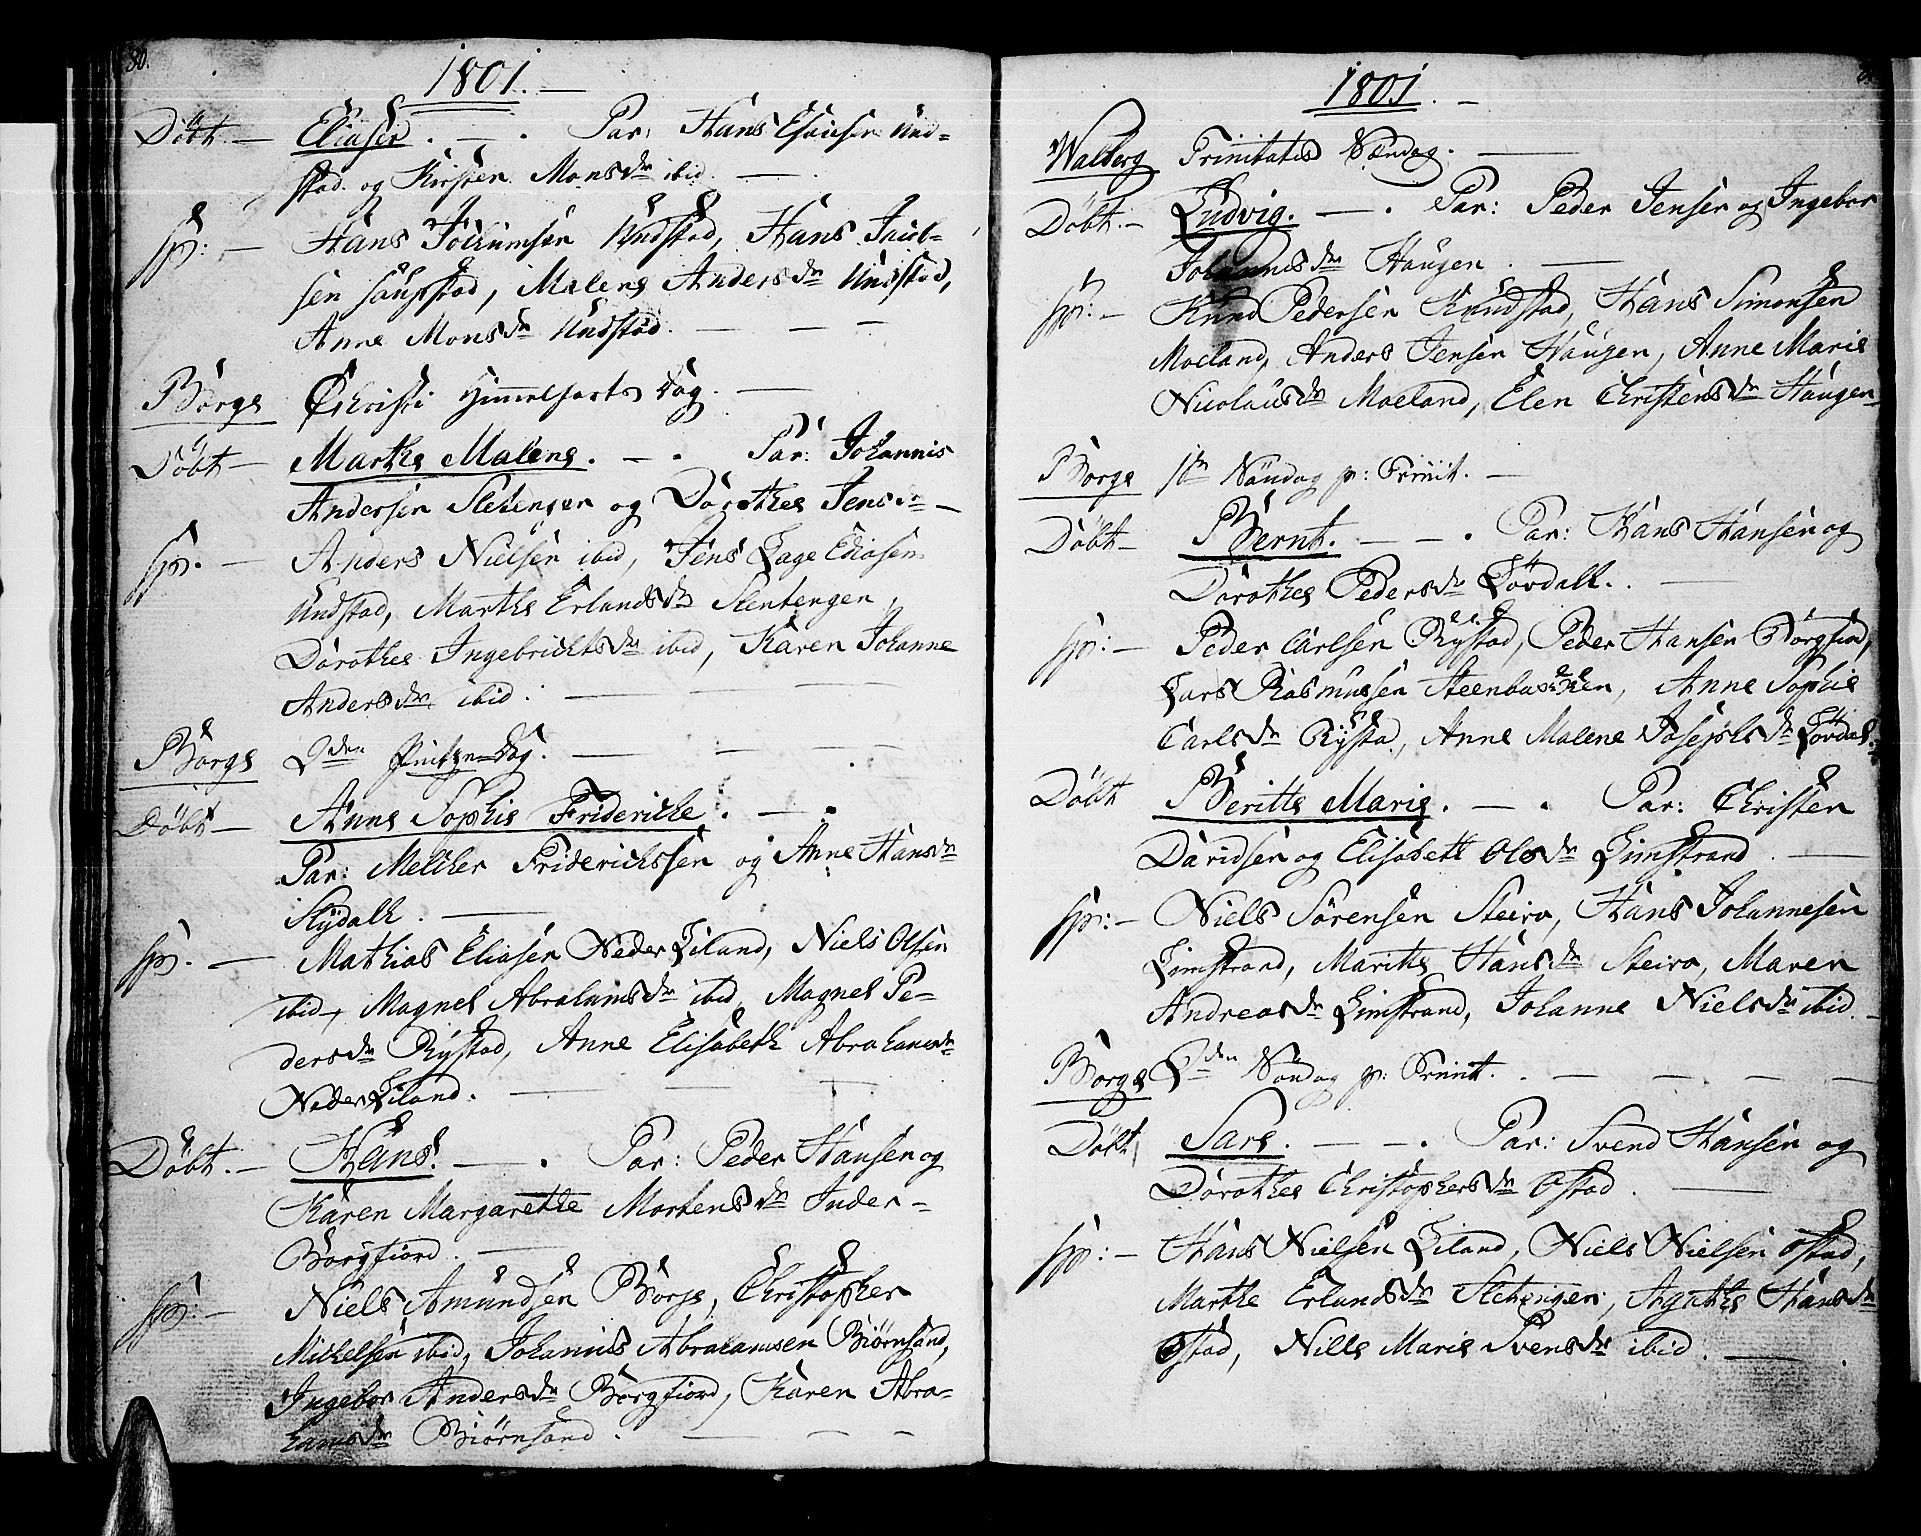 80.
1801. —
Döbt — Eliaser. — . Par: Hans Esaiasen Und=
stad og Kirsten Monsdr ibid. —
sp: — Hans Jochumsen Undstad, Hans Jacob=
sen Saupstad, Malene Andersdr Undstad,
Anne Monsdr Undstad. — — —
Borge Christi Himmelfarts Dag. —
Döbt — Marthe Malene. — . Par: Johannis
Andersen Sletengen og Dorothea Jensdr —
sp. — Anders Nielsen ibid, Jens Lage Ediasen
Undstad, Marthe Erlandsdr Sletengen,
Dorothea Ingebrichtsdr ibid, Karen Johanne
Andersdr ibid. —
Borge 2den Pintze-Dag. — — —
Döbt — Anne Sophie Fridericke. — .
Par: Melcher Friderichssen og Anne Hansdr
Slydalh. —
sp. — Mathias Eliasen Neder Liland, Niels Olsen
ibid, Magnel Abrahamsdr ibid, Magnel Pe=
dersdr Rystad, Anne Elisabeth Abrahamsdr
Neder Liland. —
Döbt. — Hans. — . Par: Peder Hansen og
Karen Margarethe Mortensdr Inder=
Borgfiord. —
sp: — Niels Amundsen Borge, Christopher
Michelsen ibid, Johannis Abrahamsen Biörnsand,
Ingebor Andersdr Borgfiord, Karen Abra=
hamsdr Biörnsand. — — —
1801. —
Walberg Trinitatis Söndag. —
Döbt. — Ludvig. — . Par: Peder Jensen og Ingebor
Johannisdr Haugen. —
sp: — Knud Pedersen Knudstad, Hans Simonsen
Moeland, Anders Jensen Haugen, Anne Marie
Nicolausdr Moeland, Elen Christensdr Haugen
Borge 1ste Söndag p: Trinit. —
Döbt — Bernt. — — . Par: Hans Hansen og
Dorothea Pedersdr Lövdalh. —
sp: — Peder Carlsen Rystad, Peder Hansen Borgfiord,
Lars Rasmussen Steenbackken, Anne Sophie
Carlsdr Rystad, Anne Malene Josephsdr Lövdal.
Döbt Beritte Marie. — . Par: Christen
Davidsen og Elisabeth Olesdr Limstrand. —
sp: — Niels Sörensen Steiro, Hans Johannesen
Limstrand, Marithe Hansdr Steiro, Maren
Andreasdr Limstrand, Johanne Nielsdr ibid. —
Borge 2den Söndag p: Trinit. — — — —
Döbt, Sara. — — . Par: Svend Hansen og
Dorothea Christophersdr Ostad. —
sp: — Hans Nielsen Liland, Niels Nielsen Ostad,
Marthe Erlandsdr Sletengen, Agathe Hansdr
Ostad, Nille Marie Svensdr ibid. —